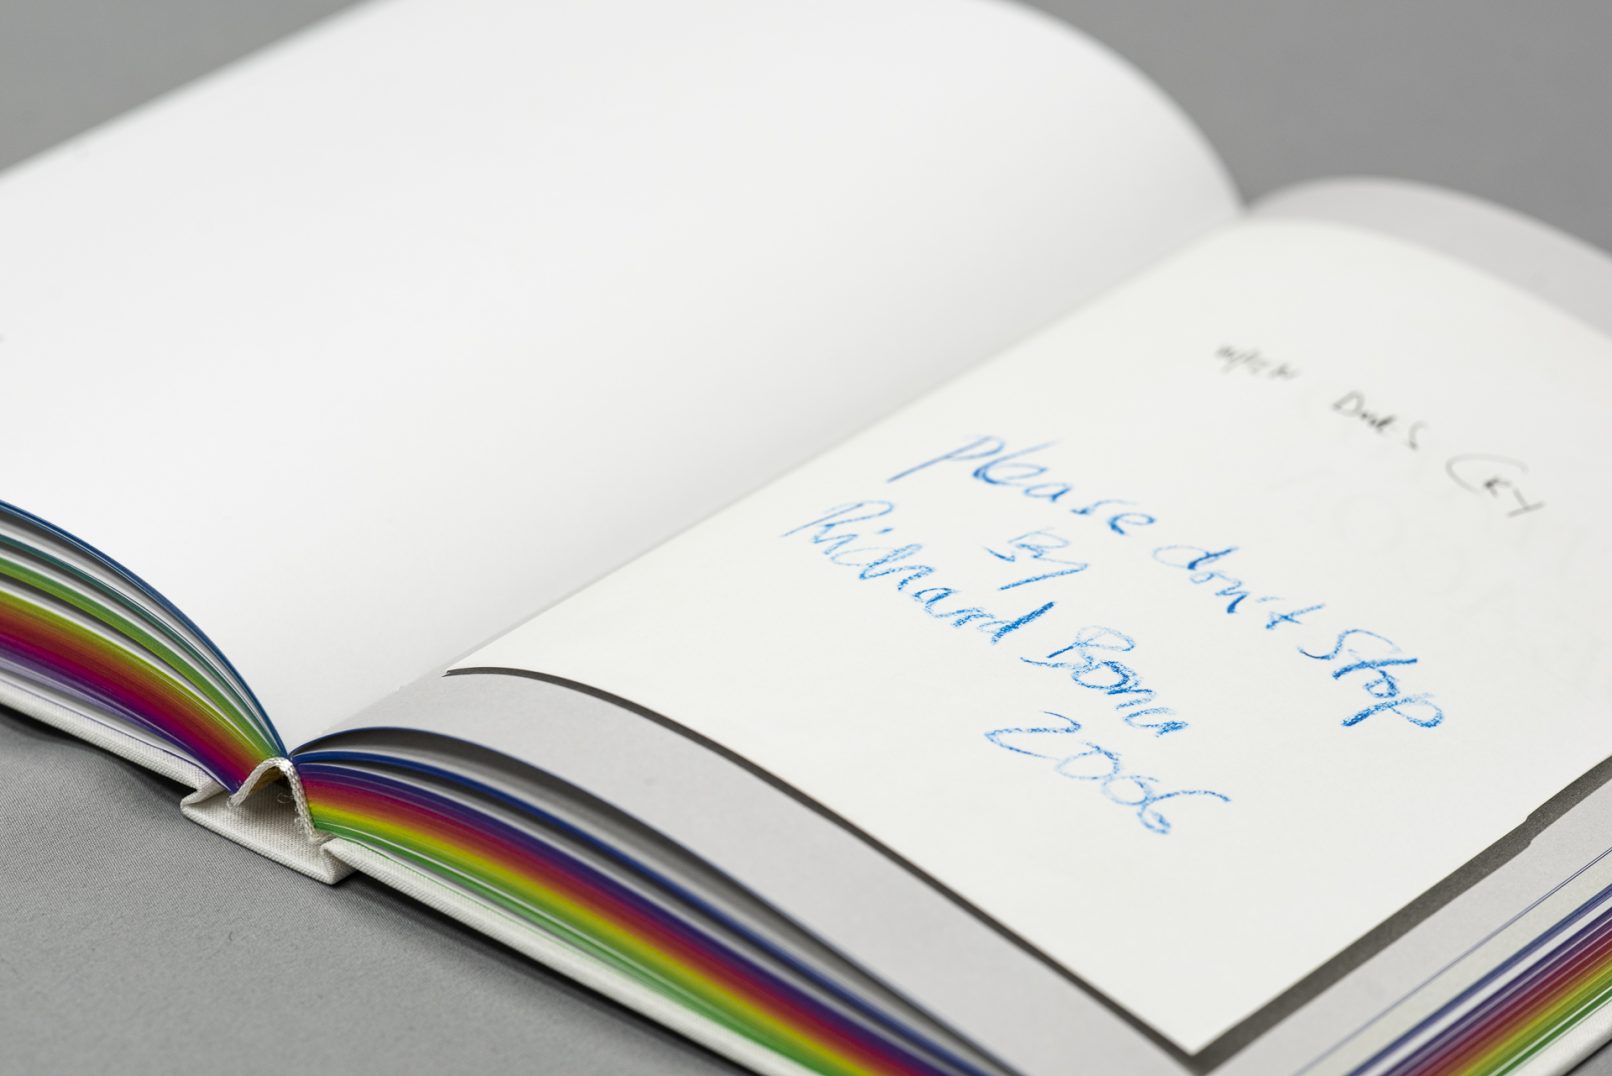 Does Cry
please don't stop
By
Richard Bonu
2006